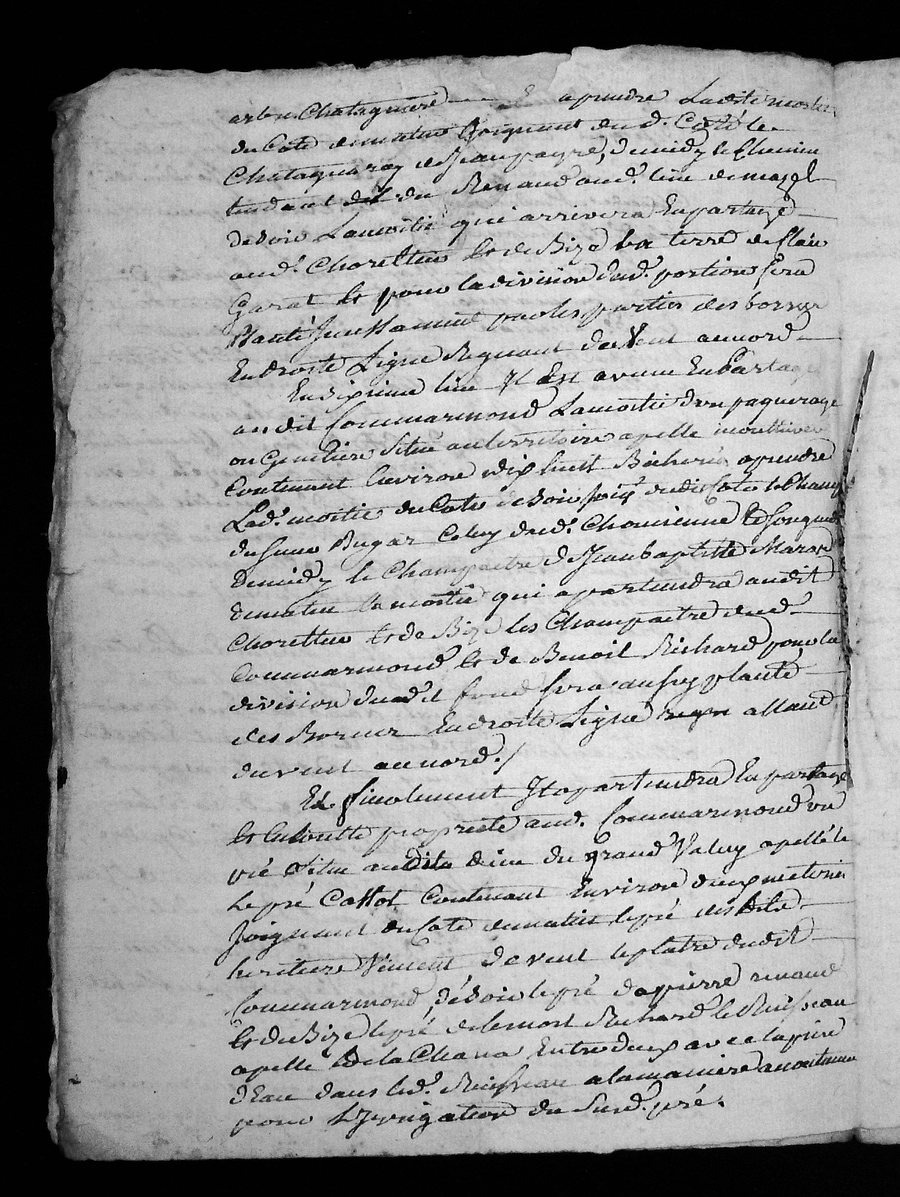 arbre Chatagniere a prendre Ladite moitié
du Coté de matin Joignant du d. Coté le
Chatagueray de Jean payre, de midy le Chemin
tendant du Renaud aud. lieu de mazel
de soir La moitié qui arrivera En partage
aud. Choretton Et de Bize La terre de
Garat Et pour la division dud. portion sera
Planté Jncessament par les parties des bornes
En droite Ligne Regnant du Vent au nord
En sixieme lieu Jl Est avenu En Partage
au dit Commarmond La moitié d'un paquerage
ou Genetiere Situé au territoire apellé
Contenant Environ dix huit Bicherées a prendre
Lad. moitié du Coté de soir joig. dudit Coté le Champ
de Celuy dud. Chomienne
De midy le Champaitre de Jean baptiste Maron
de matin la moitié qui apartiendra audit
Choretton Et de Bize les Champaitre dud.
Commarmond Et de Benoit Richard pour la
division dud. fond sera aussy planté
des Bornes En droite Ligne allant
du vent au nord ./
Et finalement Jl apartiendra En partage
Et En toutte proprieté aud. Commarmond un
pré Situé audit lieu du grand Valuy apellé le
Le pré Cottot Contenant Environ deux meterées
Joignant du Coté de matin le pré des dits
heritiers Vincent de vent le platre dudit
Commarmond, de soir le pré de pierre renaud
Et de Bize le pré de Richard le Ruisseau
apellé de la Chana Entre deux avec la prise
d'Eau dans led. Ruisseau a la maniere accoutumée
pour L'Jrrigation du Susd. pré.